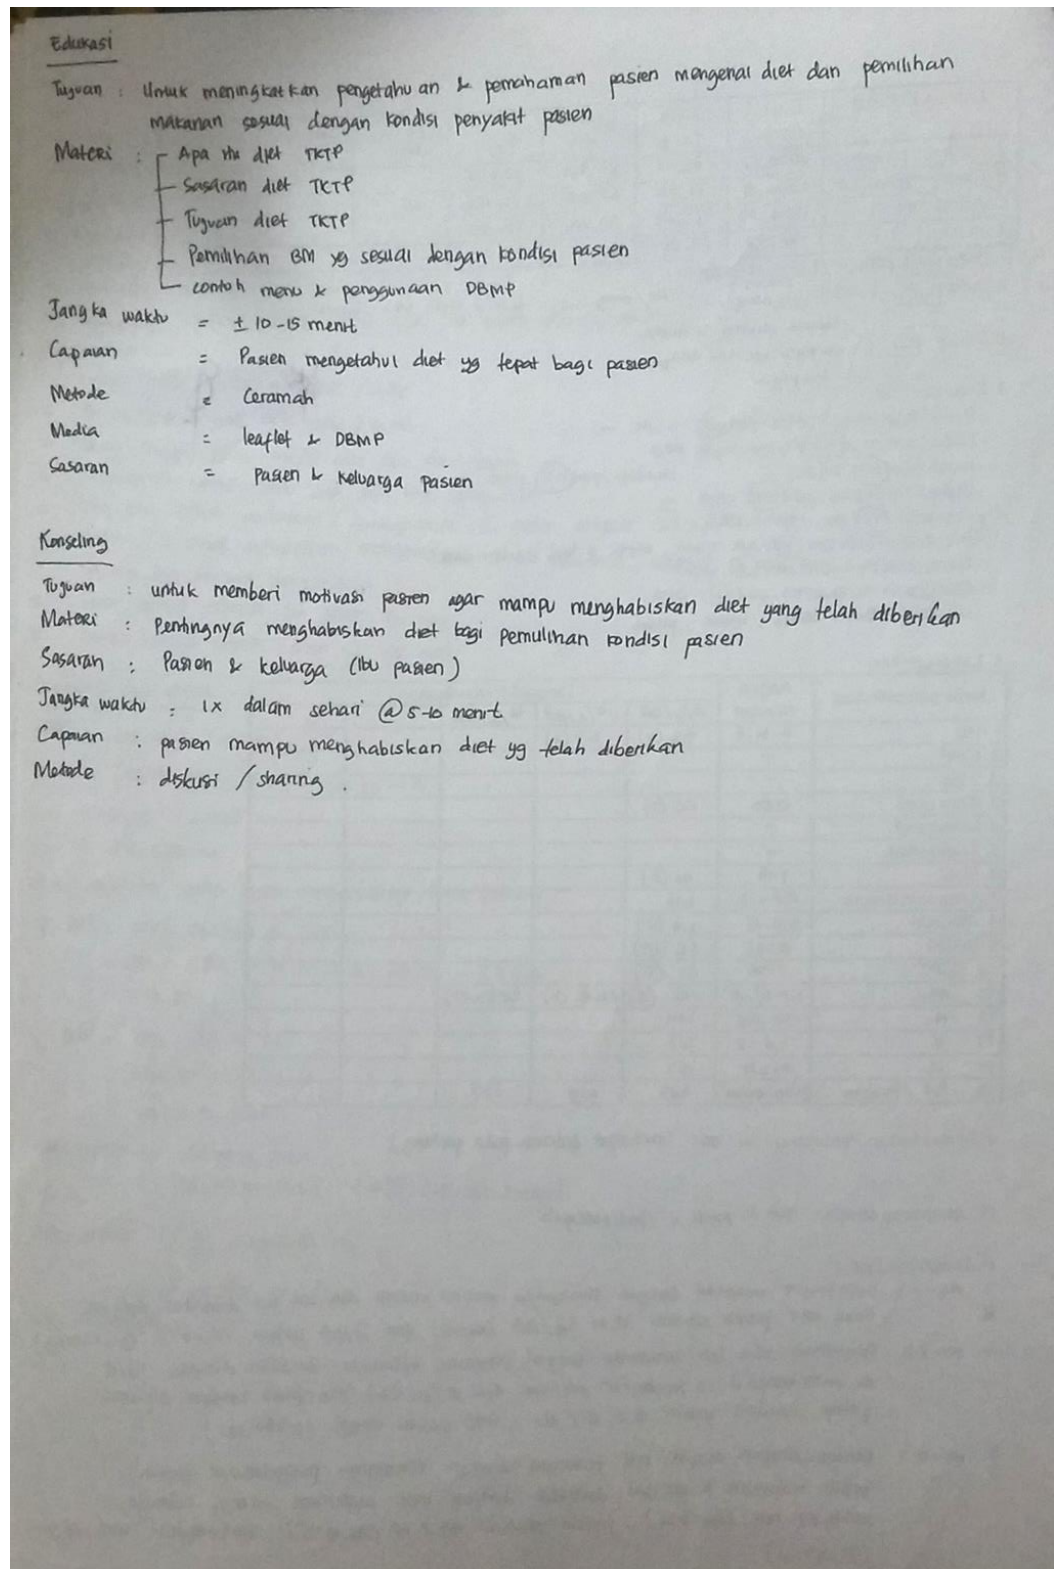 Edukasi
Tujuan : Untuk meningkatkan pengetahuan & pemahaman pasien mengenai diet dan pemilihan
makanan sesuai dengan kondisi penyakit pasien
Materi : Apa itu diet TKTP
Sasaran diet TKTP
Tujuan diet TKTP
Pemilihan BM yg sesuai dengan kondisi pasien
contoh menu & penggunaan DBMP
Jangka waktu = ± 10-15 menit
Capaian = Pasien mengetahui diet yg tepat bagi pasien
Metode = Ceramah
Media = leaflet & DBMP
Sasaran = Pasien & keluarga pasien
Konseling
Tujuan : untuk memberi motivasi pasien agar mampu menghabiskan diet yang telah diberikan
Materi : Pentingnya menghabiskan diet bagi pemulihan kondisi pasien
Sasaran : Pasien & keluarga (Ibu pasien)
Jangka waktu : 1x dalam sehari @ 5-10 menit
Capaian : pasien mampu menghabiskan diet yg telah diberikan
Metode : diskusi / sharing .